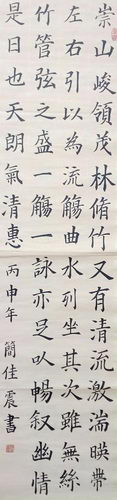 崇山峻領茂林脩竹又有清流激湍暎帶
左右引以為流觴曲水列坐其次雖無絲
竹管弦之盛一觴一詠亦足以暢叙幽情
是日也天朗氣清惠
丙申年 簡佳震書